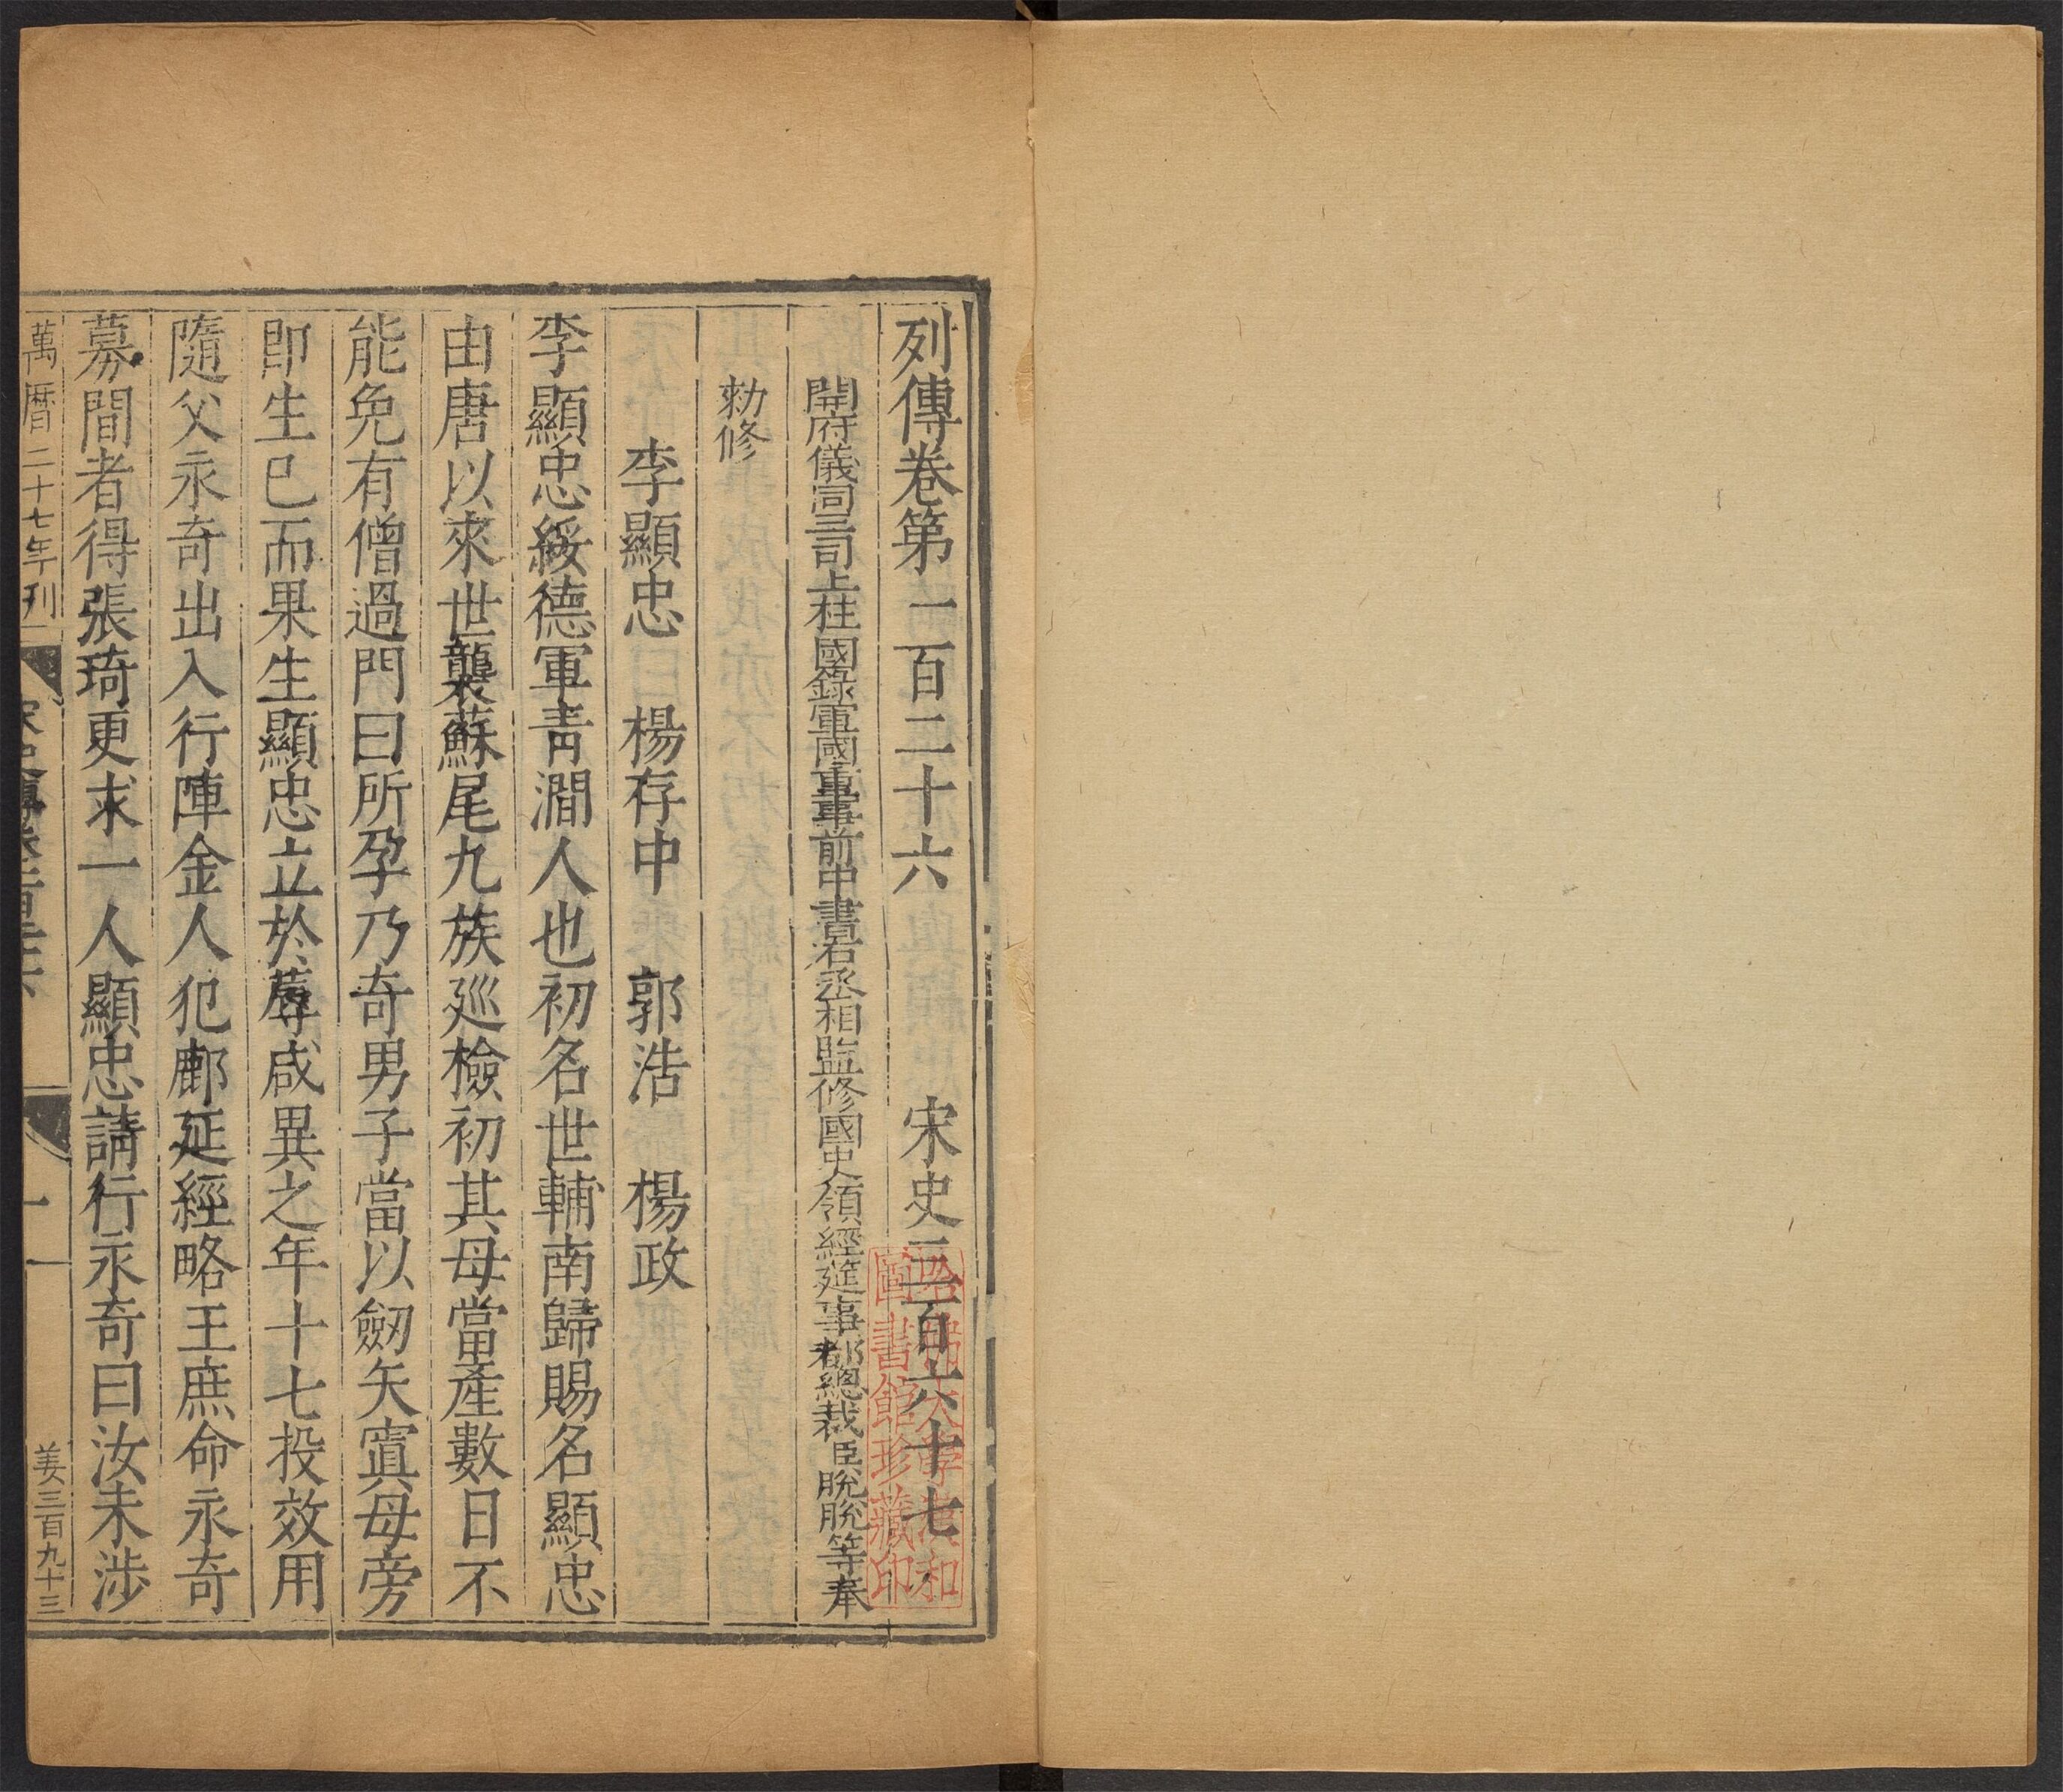 列傳卷第一百二十六 宋史三百六十七
開府儀同三司上柱國錄軍國重事前中書右丞相監修國史領經筵事都總裁臣脫脫等奉
勑修
李顯忠 楊存中 郭浩 楊政
李顯忠綏德軍青澗人也初名世輔南歸賜名顯忠
由唐以來世襲蘇尾九族廵檢初其母當產數日不
能免有僧過門曰所孕乃奇男子當以劒矢寘母旁
即生已而果生顯忠立於蓐咸異之年十七投效用
隨父永奇出入行陣金人犯鄜延經略王庶命永奇
募間者得張琦更求一人顯忠請行永奇曰汝未涉
萬曆二十七年刊
一
姜三百九十三
哈佛大學漢和
圖書館珍藏印